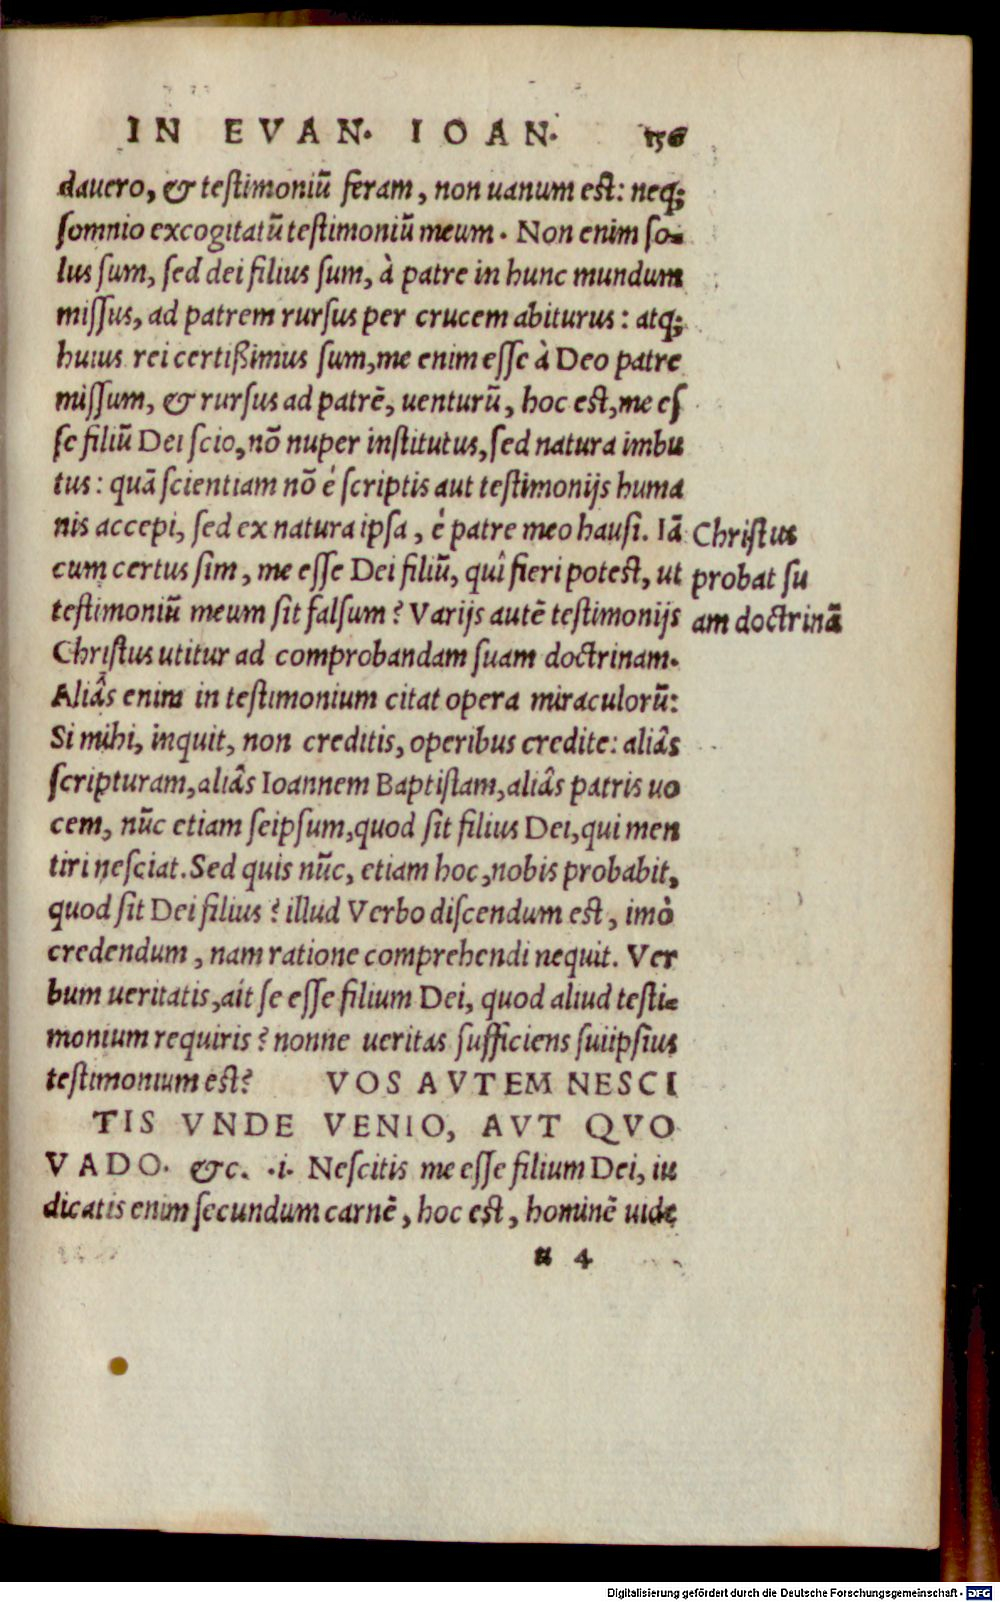 IN EVAN. IOAN. 156
dauero, & testimoniũ feram, non uanum est: neq;
somnio excogitatũ testimoniũ meum. Non enim so-
lus sum, sed dei filius sum, à patre in hunc mundum
missus, ad patrem rursus per crucem abiturus: atq;
huius rei certißimus sum, me enim esse à Deo patre
missum, & rursus ad patrẽ, uenturũ, hoc est, me es
se filiũ Dei scio, nõ nuper institutus, sed natura imbu
tus: quã scientiam nõ é scriptis aut testimonijs huma
nis accepi, sed ex natura ipsa, é patre meo hausi. Iã
cum certus sim, me esse Dei filiũ, quî fieri potest, ut
testimoniũ meum sit falsum? Varijs autẽ testimonijs
Christus utitur ad comprobandam suam doctrinam.
Aliâs enim in testimonium citat opera miraculorũ:
Si mihi, inquit, non creditis, operibus credite: aliâs
scripturam, aliâs Ioannem Baptistam, aliâs patris uo
cem, nũc etiam seipsum, quod sit filius Dei, qui men
tiri nesciat. Sed quis nũc, etiam hoc, nobis probabit,
quod sit Dei filius? illud Verbo discendum est, imò
credendum, nam ratione comprehendi nequit. Ver
bum ueritatis, ait se esse filium Dei, quod aliud testi-
monium requiris? nonne ueritas sufficiens suiipsius
testimonium est? VOS AVTEM NESCI
TIS VNDE VENIO, AVT QVO
VADO. &c. .i. Nescitis me esse filium Dei, iu
dicatis enim secundum carnẽ, hoc est, hominẽ uide
u 4
Christus
probat su
am doctrinã
Digitalisierung gefördert durch die Deutsche Forschungsgemeinschaft - DFG